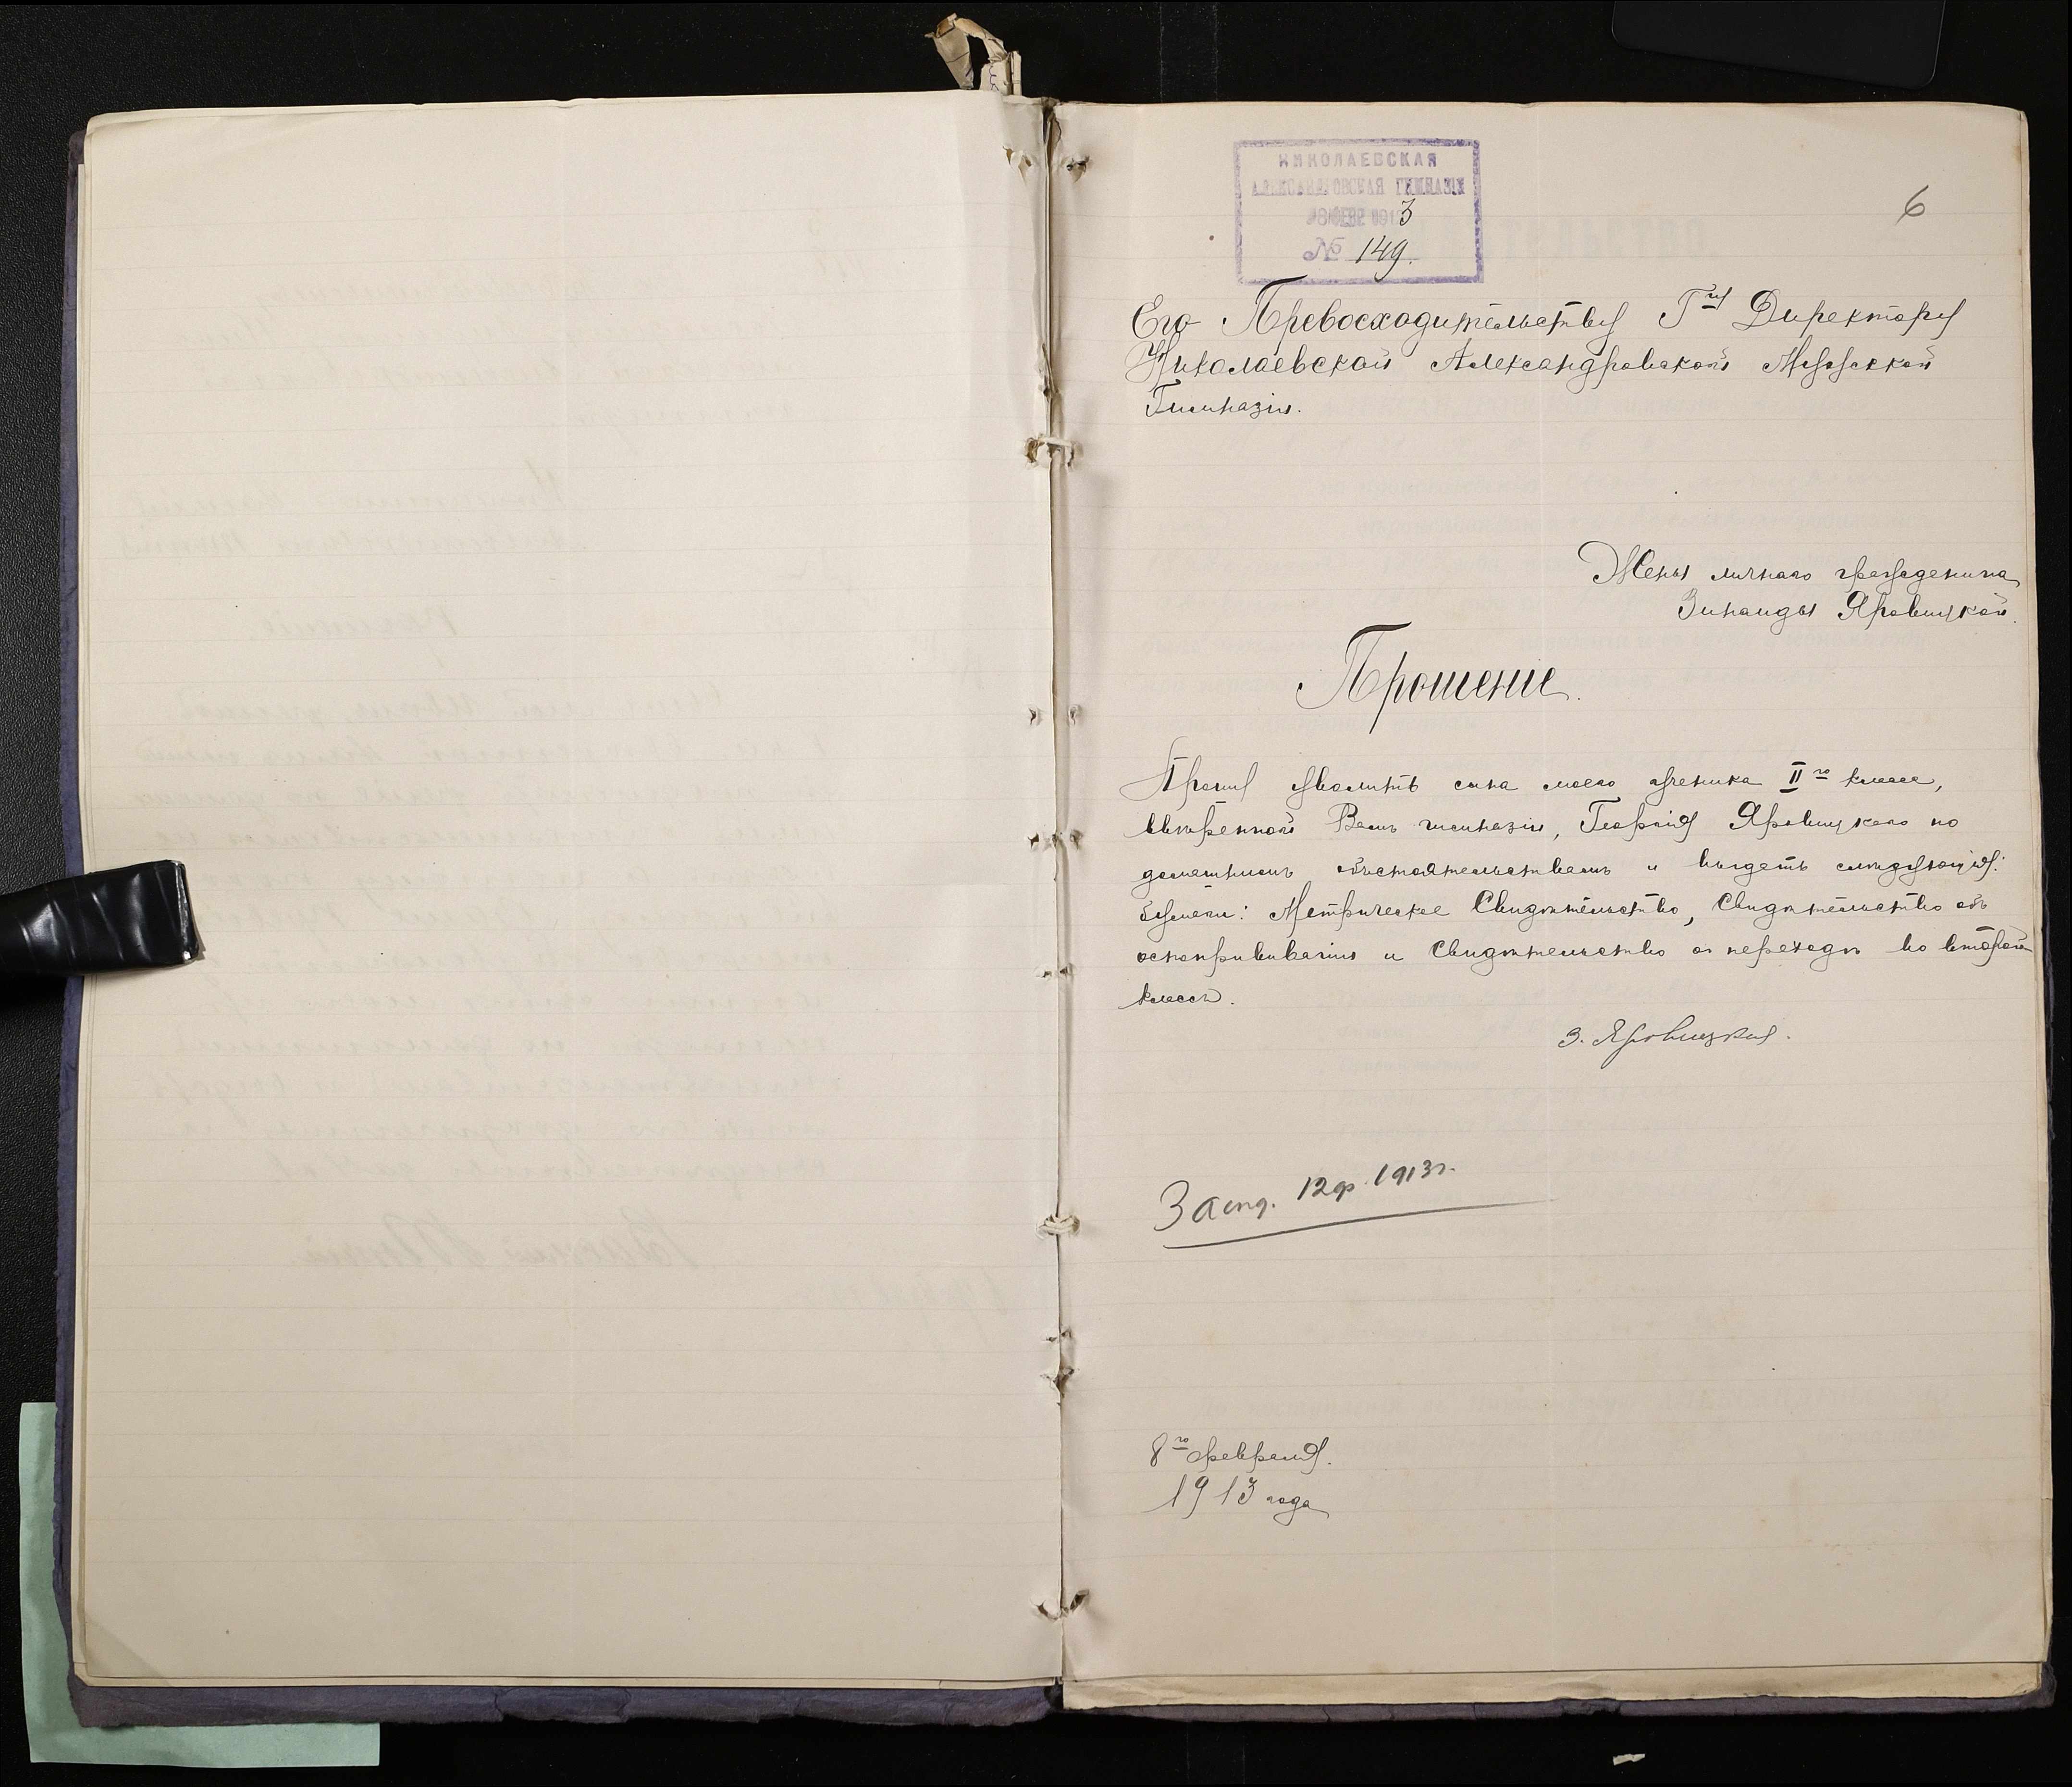 НИКОЛАЕВСКАЯ
АЛЕКСАНДРОВСКАЯ ГИМНАЗІЯ
8 ФЕВР 1913
№ 149.
6
Его Превосходительству Г-ну Директору
Николаевской Александровской Мужской
Гимназіи.
Жены личнаго гражданина
Зинаиды Яровицкой.
Прошеніе.
Прошу уволить сына моего ученика II го класса,
ввѣренной Вамъ гимназіи, Георгія Яровицкаго по
домашнимъ обстоятельствамъ и выдать слѣдующія:
бумаги: Метрическое Свидѣтельство, Свидѣтельство объ
оспопрививаніи и Свидѣтельство о переходѣ во второй
классъ.
З. Яровицкая.
12 ф. 1913 г.
8 го февраля.
1913 года